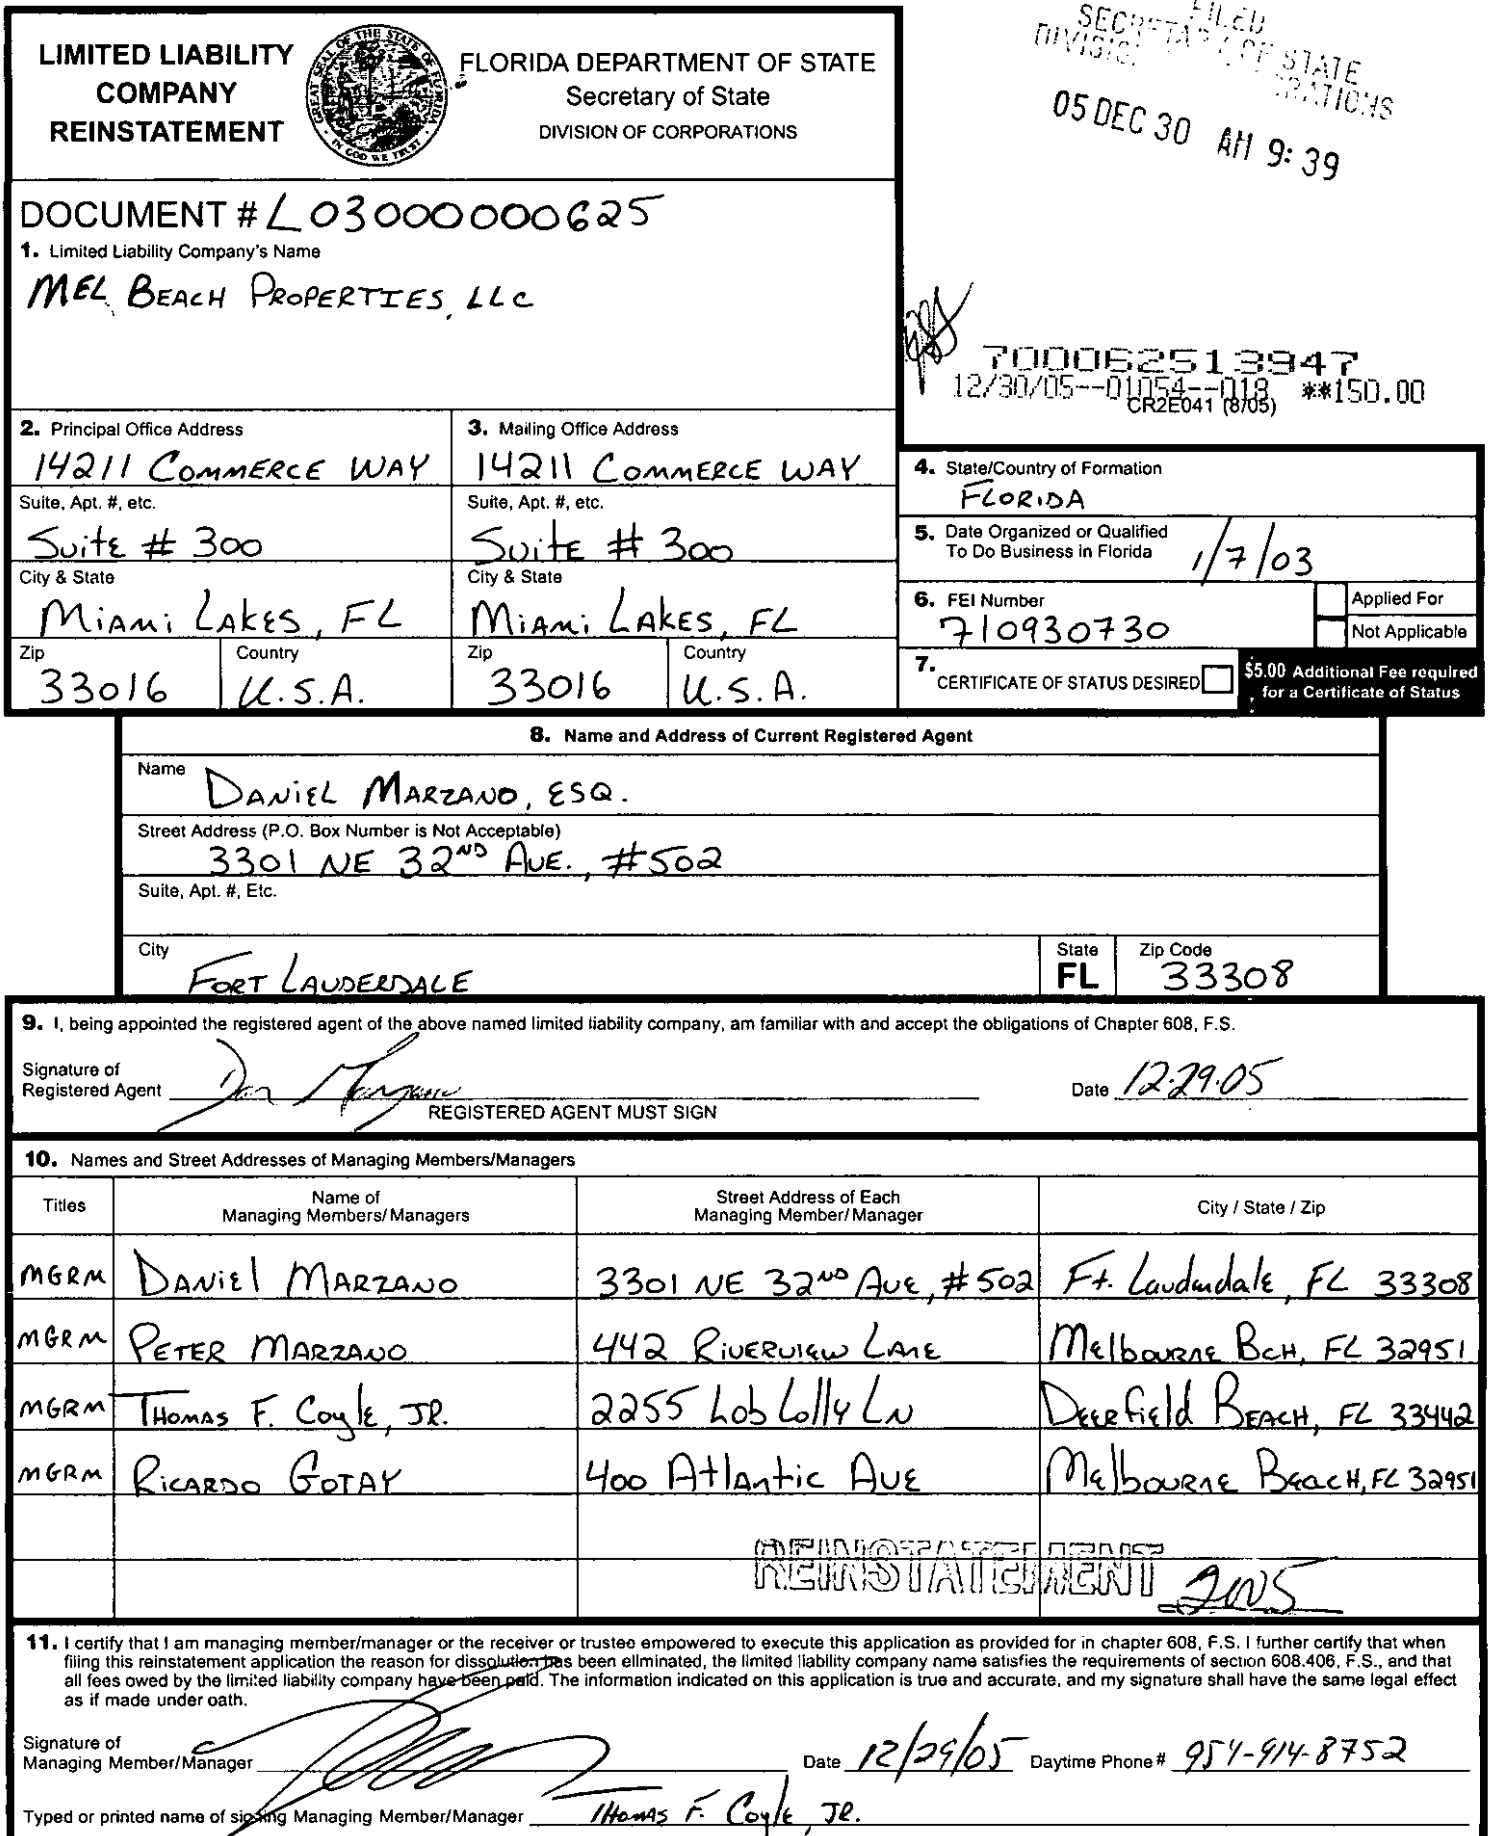 LIMITED LIABILITY
COMPANY
REINSTATEMENT
GREAT SEAL OF THE STATE OF FLORIDA
IN GOD WE TRUST
FLORIDA DEPARTMENT OF STATE
Secretary of State
DIVISION OF CORPORATIONS
FILED
SECRETARY OF STATE
05 DEC 30 AM 9:39
DOCUMENT # L03000000625
1. Limited Liability Company's Name
MEL BEACH PROPERTIES, LLC
700062513947
12/30/05--01054--018 **150.00
CR2E041 (8/05)
2. Principal Office Address
14211 COMMERCE WAY
Suite, Apt. #, etc.
Suite # 300
City & State
MIAMI LAKES, FL
Zip
33016
Country
U.S.A.
3. Mailing Office Address
14211 COMMERCE WAY
Suite, Apt. #, etc.
Suite # 300
City & State
MIAMI LAKES, FL
Zip
33016
Country
U.S.A.
4. State/Country of Formation
FLORIDA
5. Date Organized or Qualified
To Do Business in Florida 1/7/03
6. FEI Number
710930730
Applied For
Not Applicable
7. CERTIFICATE OF STATUS DESIRED
$5.00 Additional Fee required
for a Certificate of Status
8. Name and Address of Current Registered Agent
Name
DANIEL MARZANO, ESQ.
Street Address (P.O. Box Number is Not Acceptable)
3301 NE 32ND AVE., #502
Suite, Apt. #, Etc.
City
FORT LAUDERDALE
State
FL
Zip Code
33308
9. I, being appointed the registered agent of the above named limited liability company, am familiar with and accept the obligations of Chapter 608, F.S.
Signature of
Registered Agent
Date 12.29.05
REGISTERED AGENT MUST SIGN
10. Names and Street Addresses of Managing Members/Managers
Titles
Name of
Managing Members/Managers
Street Address of Each
Managing Member/Manager
City / State / Zip
MGRM DANIEL MARZANO 3301 NE 32ND AVE, #502 Ft. Lauderdale, FL 33308
MGRM PETER MARZANO 442 RIVERVIEW LANE Melbourne BCH, FL 32951
MGRM THOMAS F. Coyle, JR. 2255 Lob Lolly LN DEERfield BEACH, FL 33442
MGRM RICARDO GOTAY 400 Atlantic AVE Melbourne Beach, FL 32951
REINSTATEMENT 2005
11. I certify that I am managing member/manager or the receiver or trustee empowered to execute this application as provided for in chapter 608, F.S. I further certify that when
filing this reinstatement application the reason for dissolution has been eliminated, the limited liability company name satisfies the requirements of section 608.406, F.S., and that
all fees owed by the limited liability company have been paid. The information indicated on this application is true and accurate, and my signature shall have the same legal effect
as if made under oath.
Signature of
Managing Member/Manager
Date 12/29/05 Daytime Phone # 954-914-8752
Typed or printed name of signing Managing Member/Manager THOMAS F. Coyle, JR.